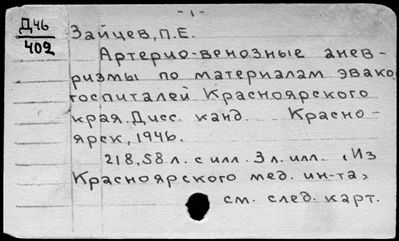 - 1 -
Д46
402
Зайцев, П.Е.
Артерио-венозные анев-
ризмы по материалам эвако
госпиталей Красноярского
края. Дисс. канд. Красно-
ярск, 1946.
218,58 л. с илл. 3 л. илл. (Из
Красноярского мед. ин-та)
см. след. карт.